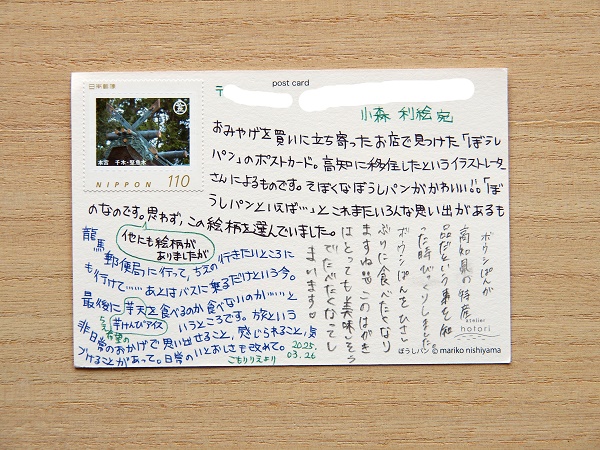 日本郵便
金
本宮 千木・堅魚木
NIPPON 110
post card
〒
小森 利絵 宛
おみやげを買いに立ち寄ったお店で見つけた「ぼうし
パン」のポストカード。高知に移住したというイラストレーター
さんによるものです。そぼくなぼうしパンがかわいい!!「ぼ
うしパンといえば…」とこれまたいろんな思い出があるも
のなのです。思わず、この絵柄を選んでいました。
他にも絵柄が
ありましたが
龍馬郵便局に行って、ちえの行きたいところに
も行けて……あとはバスに乗るだけという今。
最後に芋天を食べるのか食べないのか……と
芋けんぴアイス
いうところです。旅という
ちえ希望の
非日常のおかげで思い出せること、感じられること、気
づけることがあって。日常のいとおしさも改めて。
2025.
03.26
こもりりえより
ボウシぱんが
高知県の特産
品だという事を知
った時びっくりしました。
ボウシぱんをひさし
ぶりに食べたくなり
ますね このはがき
はとっても美味しそう
でたべたくなってし
まいます
atelier
hotori
ぼうしパン © mariko nishiyama